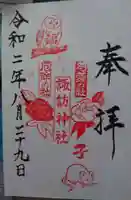 奉拝
諏訪神社
子
令和二年八月二十九日